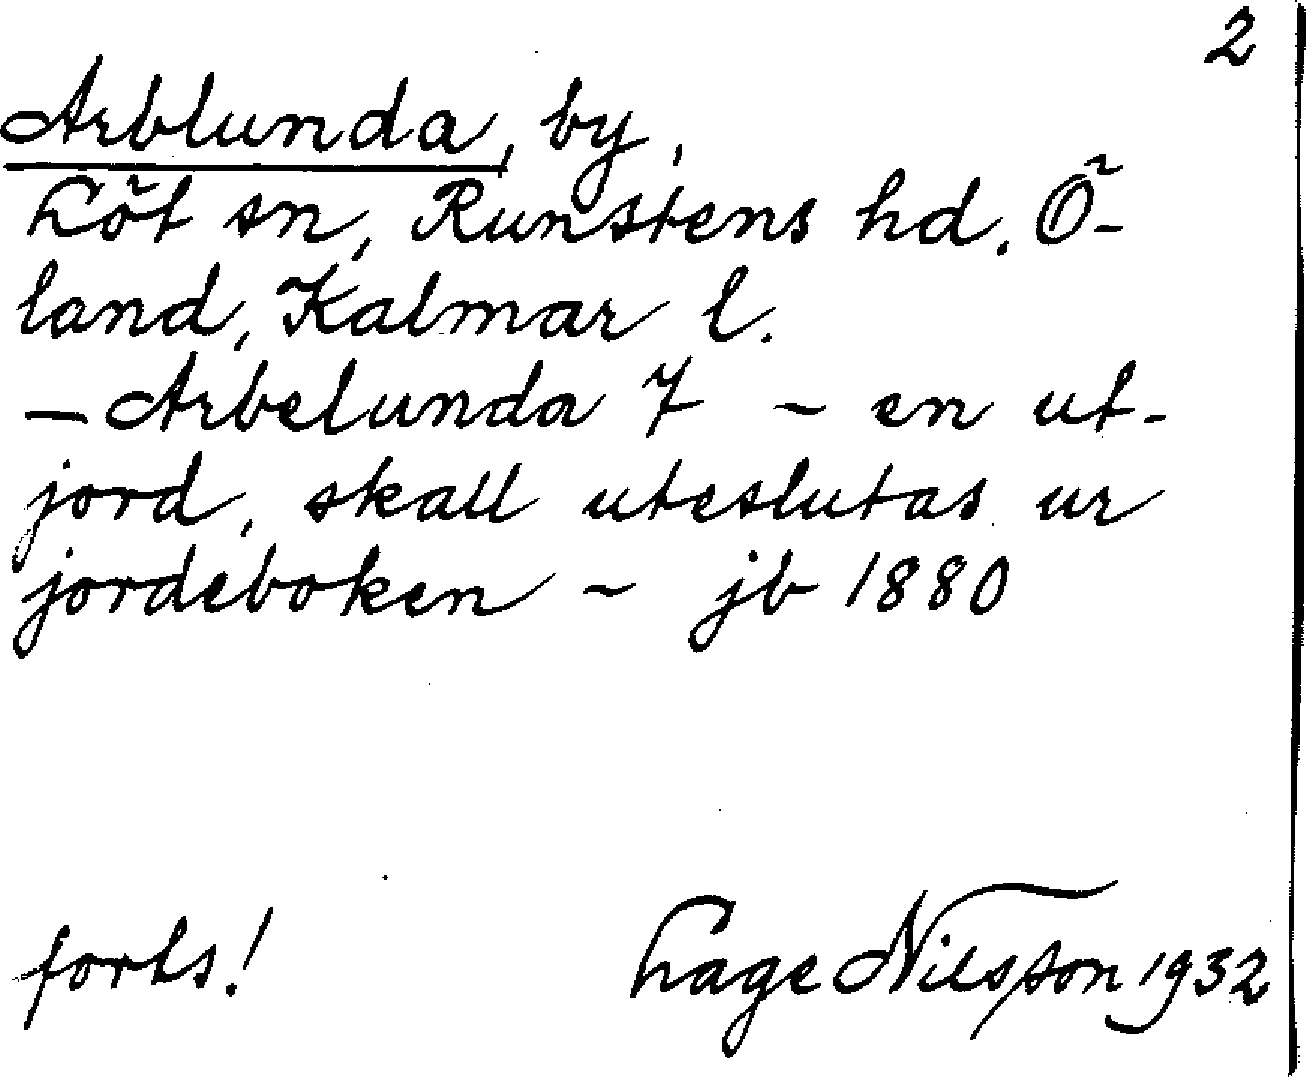 2
Arblunda, by,
Löt sn, Runstens hd. Ö-
land, Kalmar l.
— Arbelunda 7 – en ut-
jord, skall uteslutas ur
jordeboken – jb 1880
forts! Lage Nilsson 1932